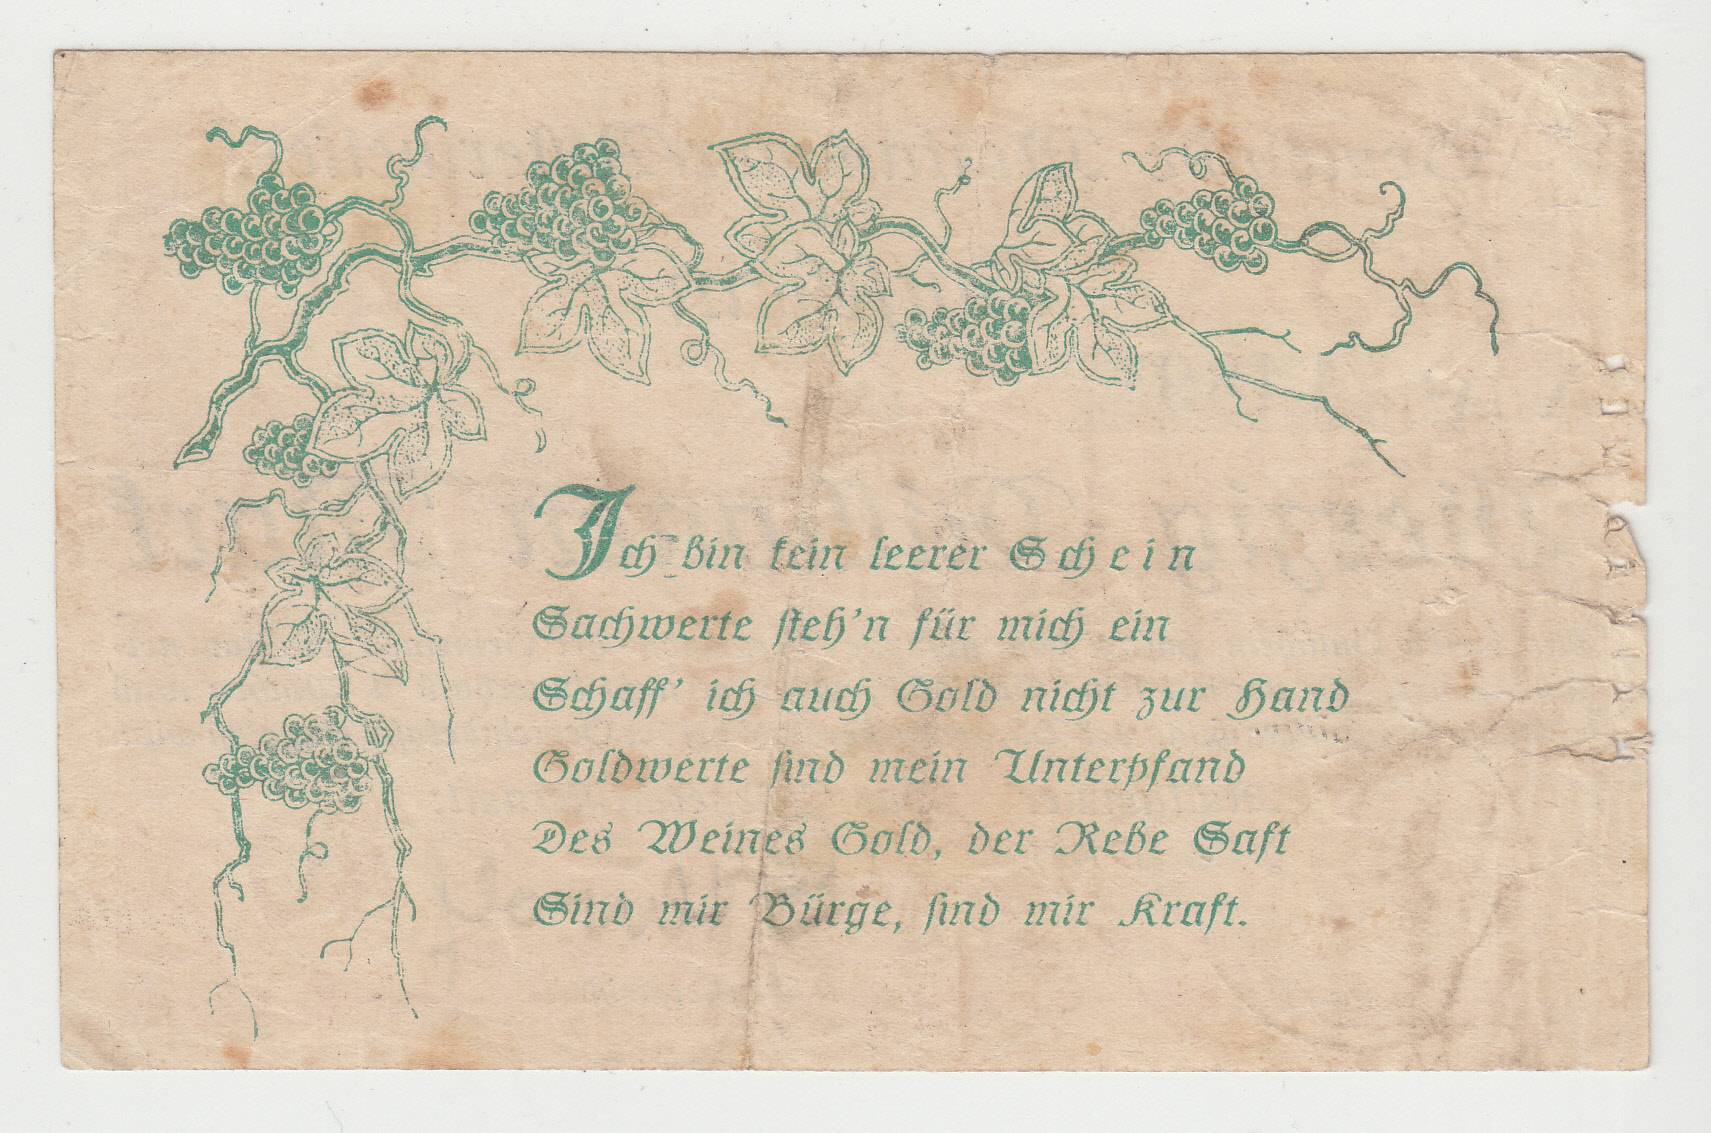 Ich bin kein leerer Schein
Sachwerte steh'n für mich ein
Schaff' ich auch Gold nicht zur Hand
Goldwerte sind mein Unterpfand
Des Weines Gold, der Rebe Saft
Sind mir Bürge, sind mir Kraft.